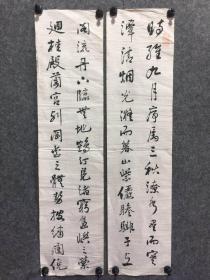 時維九月序屬三秋潦水盡而寒
潭清煙光凝而暮山紫儼驂騑于上
閣流丹下臨無地鶴汀鳧渚窮島嶼之縈
迴桂殿蘭宮列岡巒之體勢披繡闥俯